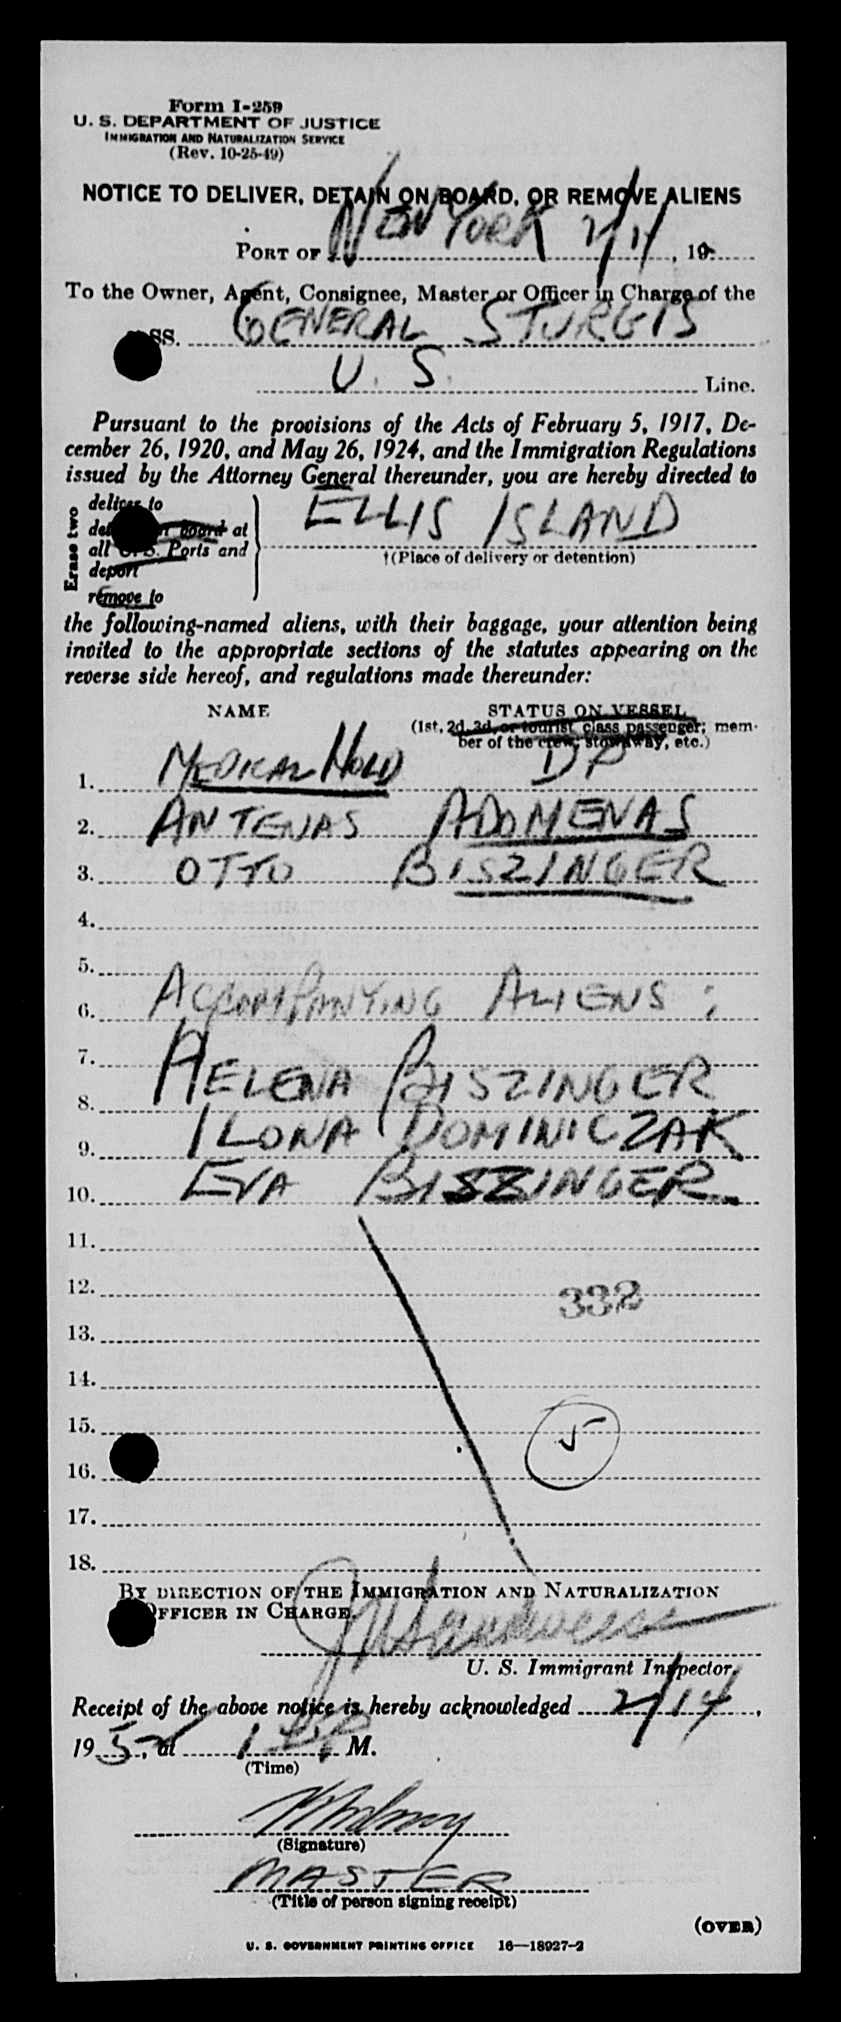 Form I-259
U. S. DEPARTMENT OF JUSTICE
IMMIGRATION AND NATURALIZATION SERVICE
(Rev. 10-25-49)
NOTICE TO DELIVER, DETAIN ON BOARD, OR REMOVE ALIENS
PORT OF NEW YORK 2/ , 19
To the Owner, Agent, Consignee, Master or Officer in Charge of the
SS. GENERAL STURGIS
U. S. Line.
Pursuant to the provisions of the Acts of February 5, 1917, De-
cember 26, 1920, and May 26, 1924, and the Immigration Regulations
issued by the Attorney General thereunder, you are hereby directed to
Erase two
deliver to
board at
all U. S. Ports and
deport
remove to
ELLIS ISLAND
†(Place of delivery or detention)
the following-named aliens, with their baggage, your attention being
invited to the appropriate sections of the statutes appearing on the
reverse side hereof, and regulations made thereunder:
NAME STATUS ON VESSEL
(1st, 2d, 3d, or tourist class passenger; mem-
ber of the crew, stowaway, etc.)
1. MEDICAL HOLD DP
2. ANTENAS ADOMENAS
3. OTTO BISZINGER
4.
5.
6. ACCOMPANYING ALIENS :
7.
8. HELENA BISZINGER
9. ILONA DOMINICZAK
10. EVA BISZINGER
11.
12. 332
13.
14.
15. 5
16.
17.
18.
BY DIRECTION OF THE IMMIGRATION AND NATURALIZATION
OFFICER IN CHARGE
U. S. Immigrant Inspector.
Receipt of the above notice is hereby acknowledged 2/14,
1952, at 1 P. M.
(Time)
(Signature)
MASTER
(Title of person signing receipt)
(OVER)
U. S. GOVERNMENT PRINTING OFFICE 16—18927-2